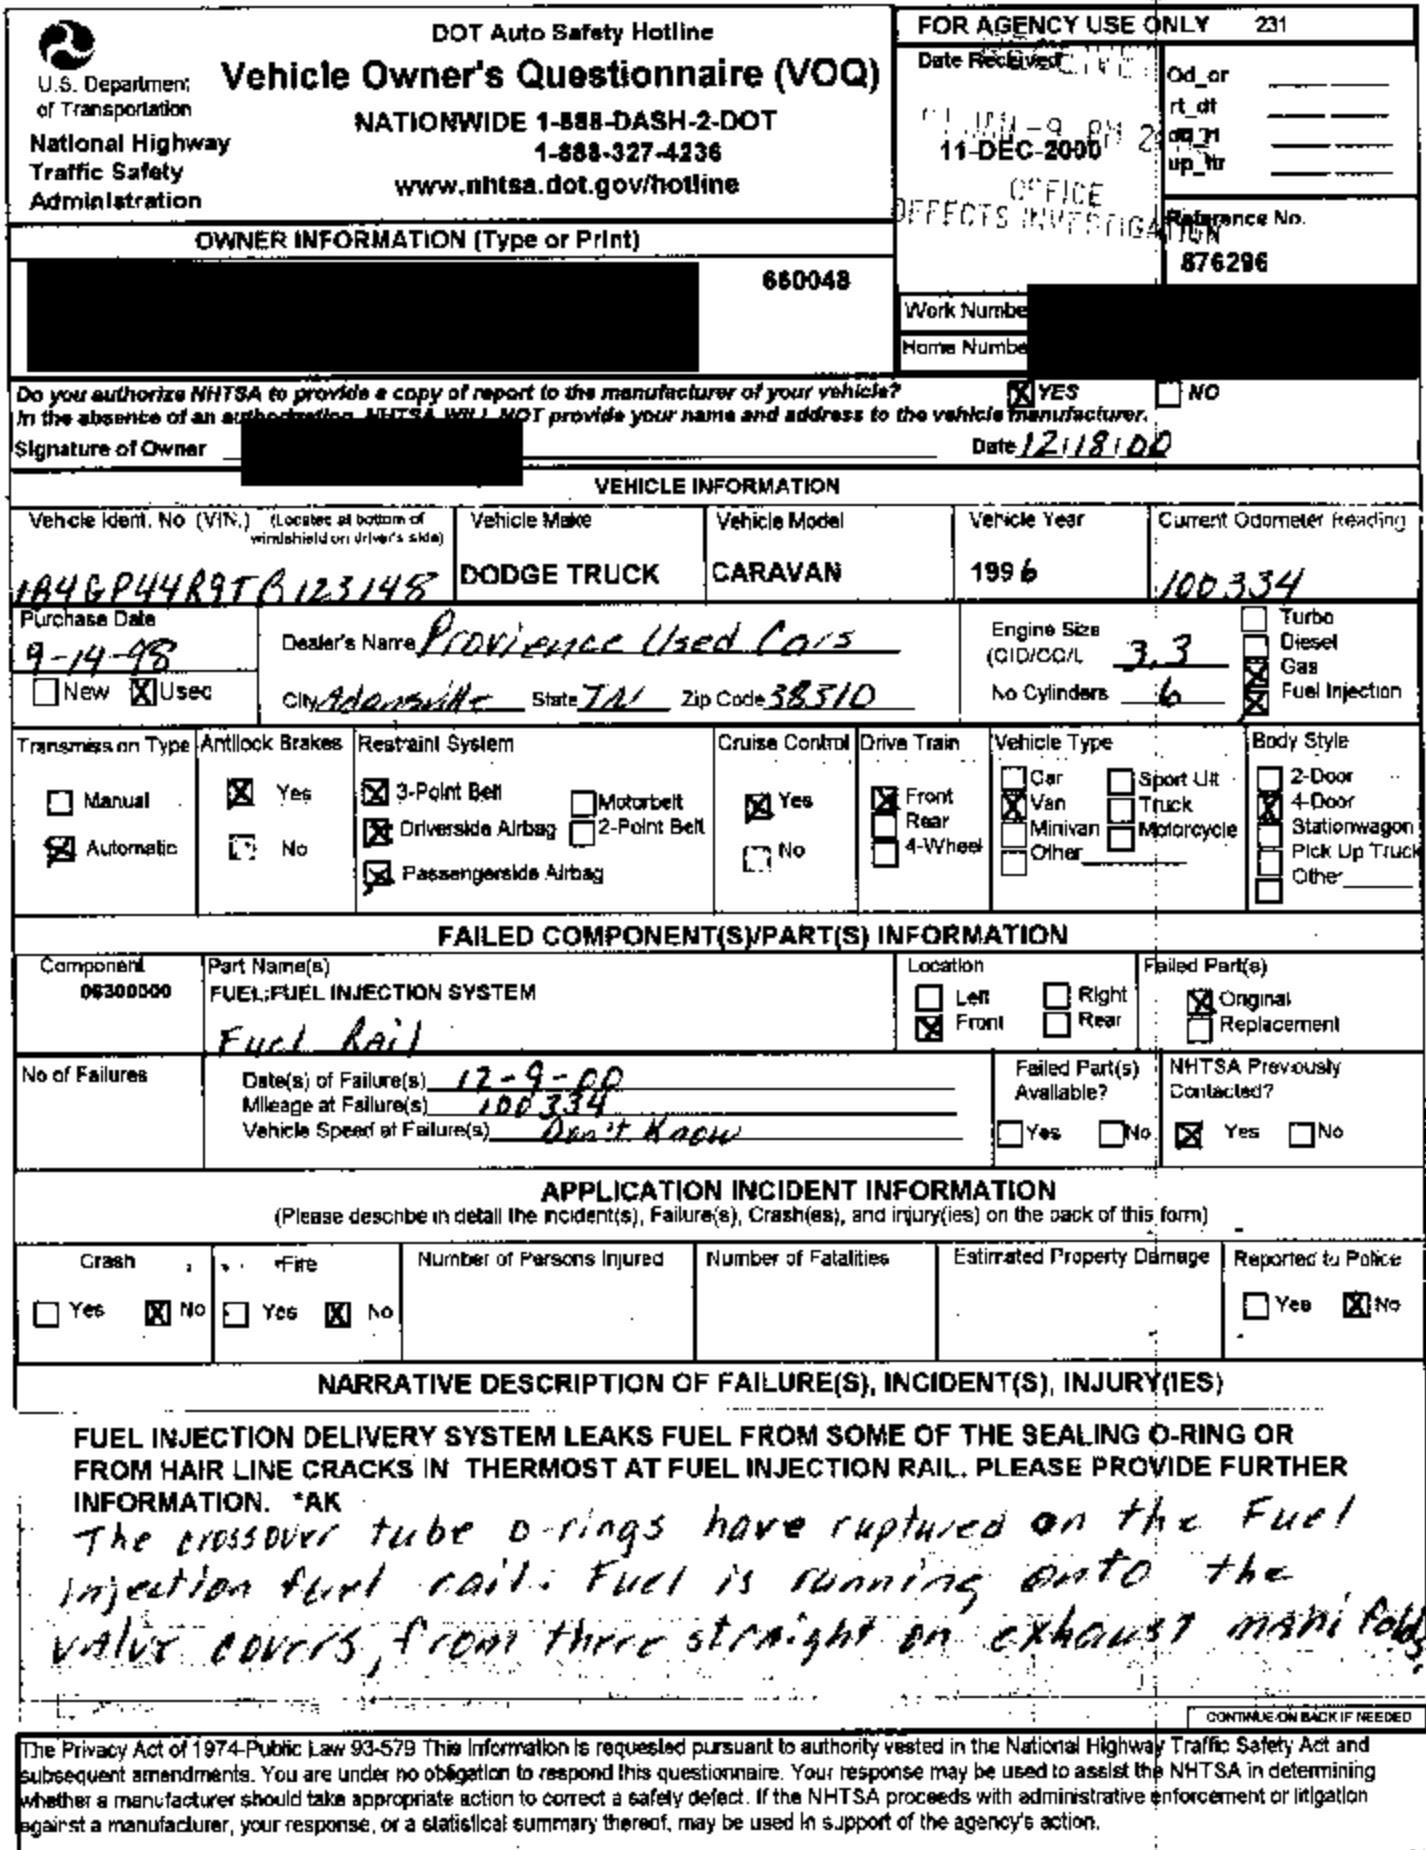 DOT Auto Safety Hotline
Vehicle Owner's Questionnaire (VOQ)
NATIONWIDE 1-888-DASH-2-DOT
1-888-327-4236
www.nhtsa.dot.gov/hotline
U.S. Department
of Transportation
National Highway
Traffic Safety
Administration
FOR AGENCY USE ONLY 231
Date Received
JAN -9 PM 2
11-DEC-2000
OFFICE
DEFECTS INVESTIGATION
Od_or
rt_dt
up_ltr
Reference No.
876296
OWNER INFORMATION (Type or Print)
660048
Work Numbe
Home Numbe
Do you authorize NHTSA to provide a copy of report to the manufacturer of your vehicle? YES NO
In the absence of an authorization, NHTSA WILL NOT provide your name and address to the vehicle manufacturer.
Signature of Owner Date 12/18/00
VEHICLE INFORMATION
Vehicle Ident. No (VIN.) (Located at bottom of
windshield on driver's side)
1A4GP44R9TB123148
Vehicle Make
DODGE TRUCK
Vehicle Model
CARAVAN
Vehicle Year
1996
Current Odometer Reading
100334
Purchase Date
9-14-98
New Used
Dealer's Name Provience Used Cars
City Adamsville State TN Zip Code 38310
Engine Size
(CID/CC/L 3.3
No Cylinders 6
Turbo
Diesel
Gas
Fuel Injection
Transmission Type
Manual
Automatic
Antilock Brakes
Yes
No
Restraint System
3-Point Belt
Driverside Airbag
Passengerside Airbag
Motorbelt
2-Point Belt
Cruise Control
Yes
No
Drive Train
Front
Rear
4-Wheel
Vehicle Type
Car
Van
Minivan
Other
Sport Ut
Truck
Motorcycle
Body Style
2-Door
4-Door
Stationwagon
Pick Up Truck
Other
FAILED COMPONENT(S)/PART(S) INFORMATION
Component
06300000
Part Name(s)
FUEL:FUEL INJECTION SYSTEM
Fuel Rail
Location
Left
Front
Right
Rear
Failed Part(s)
Original
Replacement
No of Failures
Date(s) of Failure(s) 12-9-00
Mileage at Failure(s) 100334
Vehicle Speed at Failure(s) Don't Know
Failed Part(s)
Available?
Yes No
NHTSA Previously
Contacted?
Yes No
APPLICATION INCIDENT INFORMATION
(Please describe in detail the incident(s), Failure(s), Crash(es), and injury(ies) on the back of this form)
Crash
Yes No
Fire
Yes No
Number of Persons Injured
Number of Fatalities
Estimated Property Damage
Reported to Police
Yes No
NARRATIVE DESCRIPTION OF FAILURE(S), INCIDENT(S), INJURY(IES)
FUEL INJECTION DELIVERY SYSTEM LEAKS FUEL FROM SOME OF THE SEALING O-RING OR
FROM HAIR LINE CRACKS IN THERMOST AT FUEL INJECTION RAIL. PLEASE PROVIDE FURTHER
INFORMATION. *AK
The crossover tube o-rings have ruptured on the Fuel
injection fuel rail. Fuel is running onto the
valve covers, from there straight on exhaust manifolds.
CONTINUE ON BACK IF NEEDED
The Privacy Act of 1974-Public Law 93-579 This Information is requested pursuant to authority vested in the National Highway Traffic Safety Act and
subsequent amendments. You are under no obligation to respond this questionnaire. Your response may be used to assist the NHTSA in determining
whether a manufacturer should take appropriate action to correct a safety defect. If the NHTSA proceeds with administrative enforcement or litigation
against a manufacturer, your response, or a statistical summary thereof, may be used in support of the agency's action.